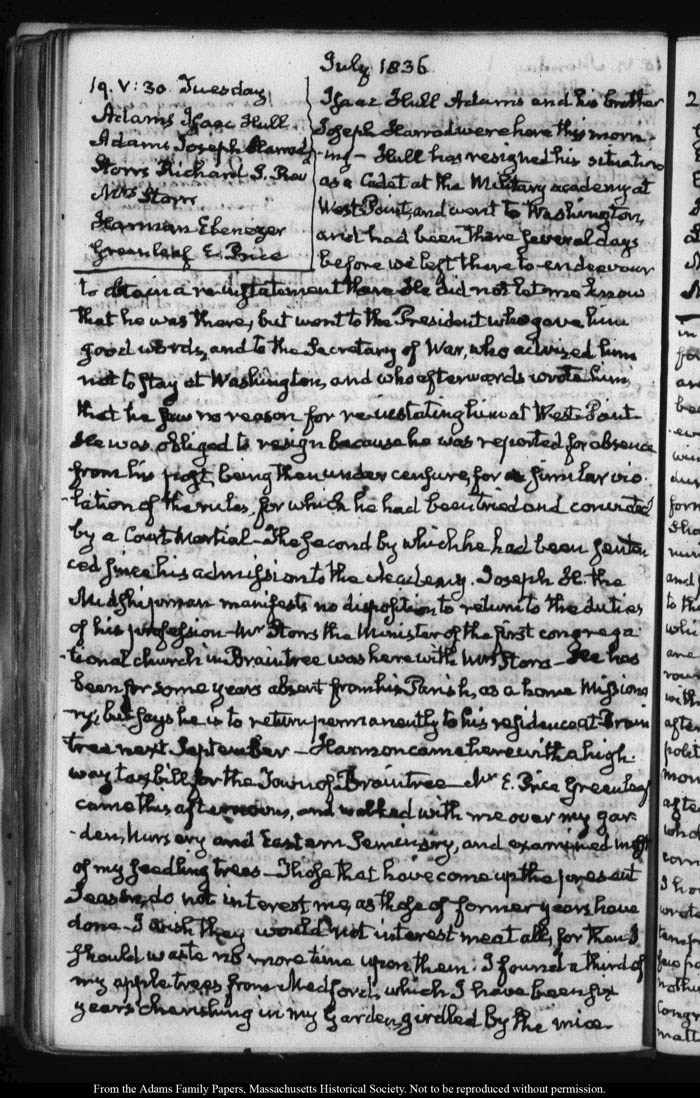 July 1836
19. V: 30. Tuesday
Adams Isaac Hull.
Adams Joseph Harrod
Storrs Richard S. Rev
Mrs Storrs
Harman Ebenezer
Greenleaf E. Price
Isaac Hull Adams and his brother
Joseph Harrod were here this morn-
-ing - Hull has resigned his situation
as a Cadet at the Military academy at
West-Point, and went to Washington,
and had been there several days
before we left there to endeavour
to obtain a re-instatement there. He did not let me know
that he was there, but went to the President who gave him
good words, and to the Secretary of War, who advised him
not to stay at Washington, and who afterwards wrote him
that he saw no reason for re-instating him at West-Point.
He was obliged to resign because he was reported for absence
from his post, being then under censure, for a similar vio-
-lation of the rules, for which he had been tried and convicted
by a Court Martial - The second by which he had been senten
ced since his admission to the Academy. Joseph H. the
Midshipman manifests no disposition to return to the duties
of his profession - Mr Storrs the Minister of the first congrega
-tional church in Braintree was here with Mrs Storrs - He has
been for some years absent from his Parish, as a home Missiona
ry, but says he is to return permanently to his residence at Brain
tree next September - Harmon came here with a high-
way tax bill for the Town of Braintree - Mr E. Price Greenleaf
came this afternoon, and walked with me over my gar-
-den, Nursery and Eastern Seminary, and examined most
of my seedling trees - Those that have come up the present
season, do not interest me, as those of former years have
done - I wish they would not interest me at all, for then I
should waste no more time upon them. I found a third of
my apple trees from Medford, which I have been six
years cherishing in my Garden, girdled by the mice.
From the Adams Family Papers, Massachusetts Historical Society. Not to be reproduced without permission.